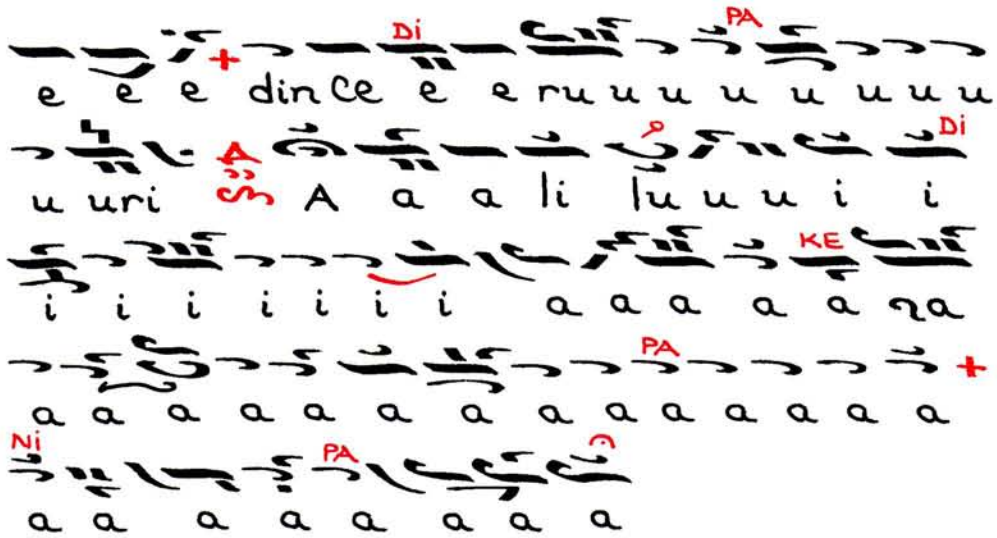 Di PA
e e e din ce e e ru u u u u u u u
Di
u uri A a a li lu u u i i
KE
i i i i i i i a a a a a za
PA
a a a a a a a a a a a a a a
Ni PA
a a a a a a a a